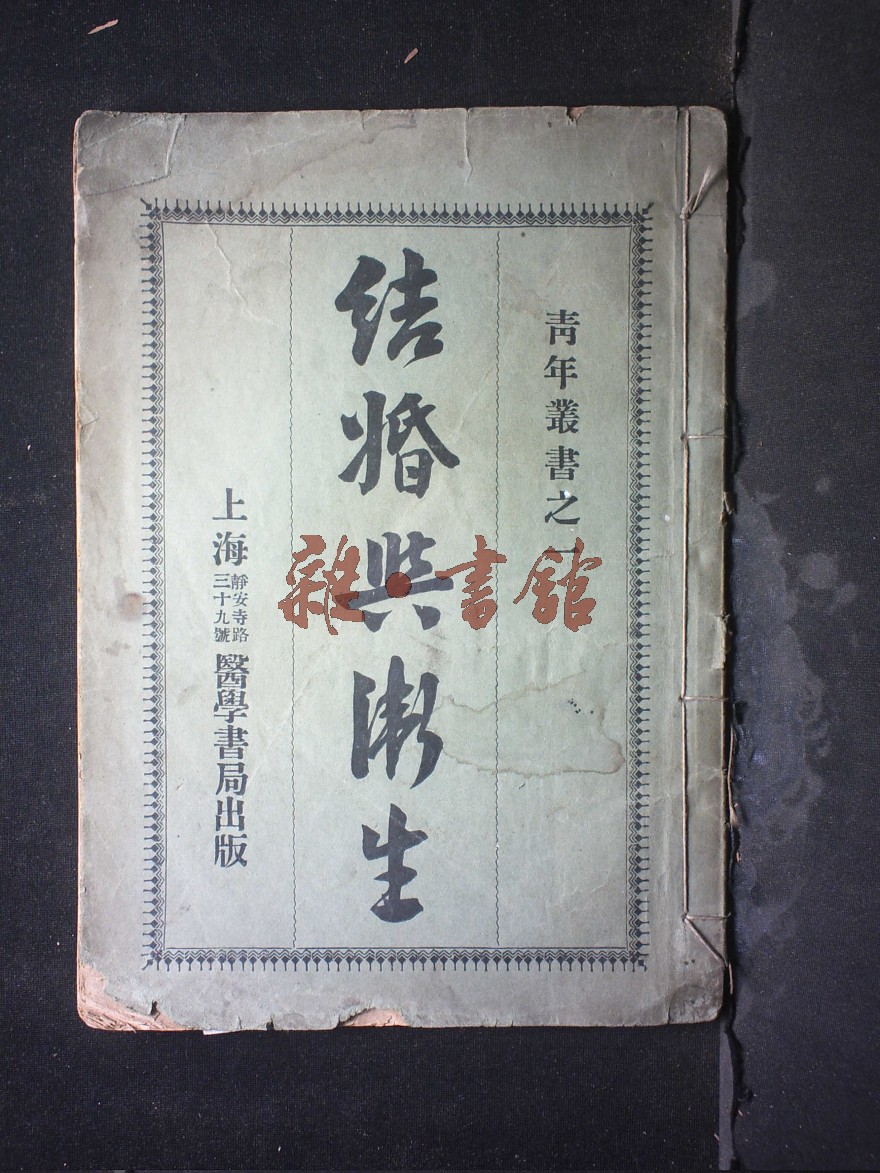 青年叢書之一
結婚與衛生
上海
靜安寺路
三十九號
醫學書局出版
雜·書館